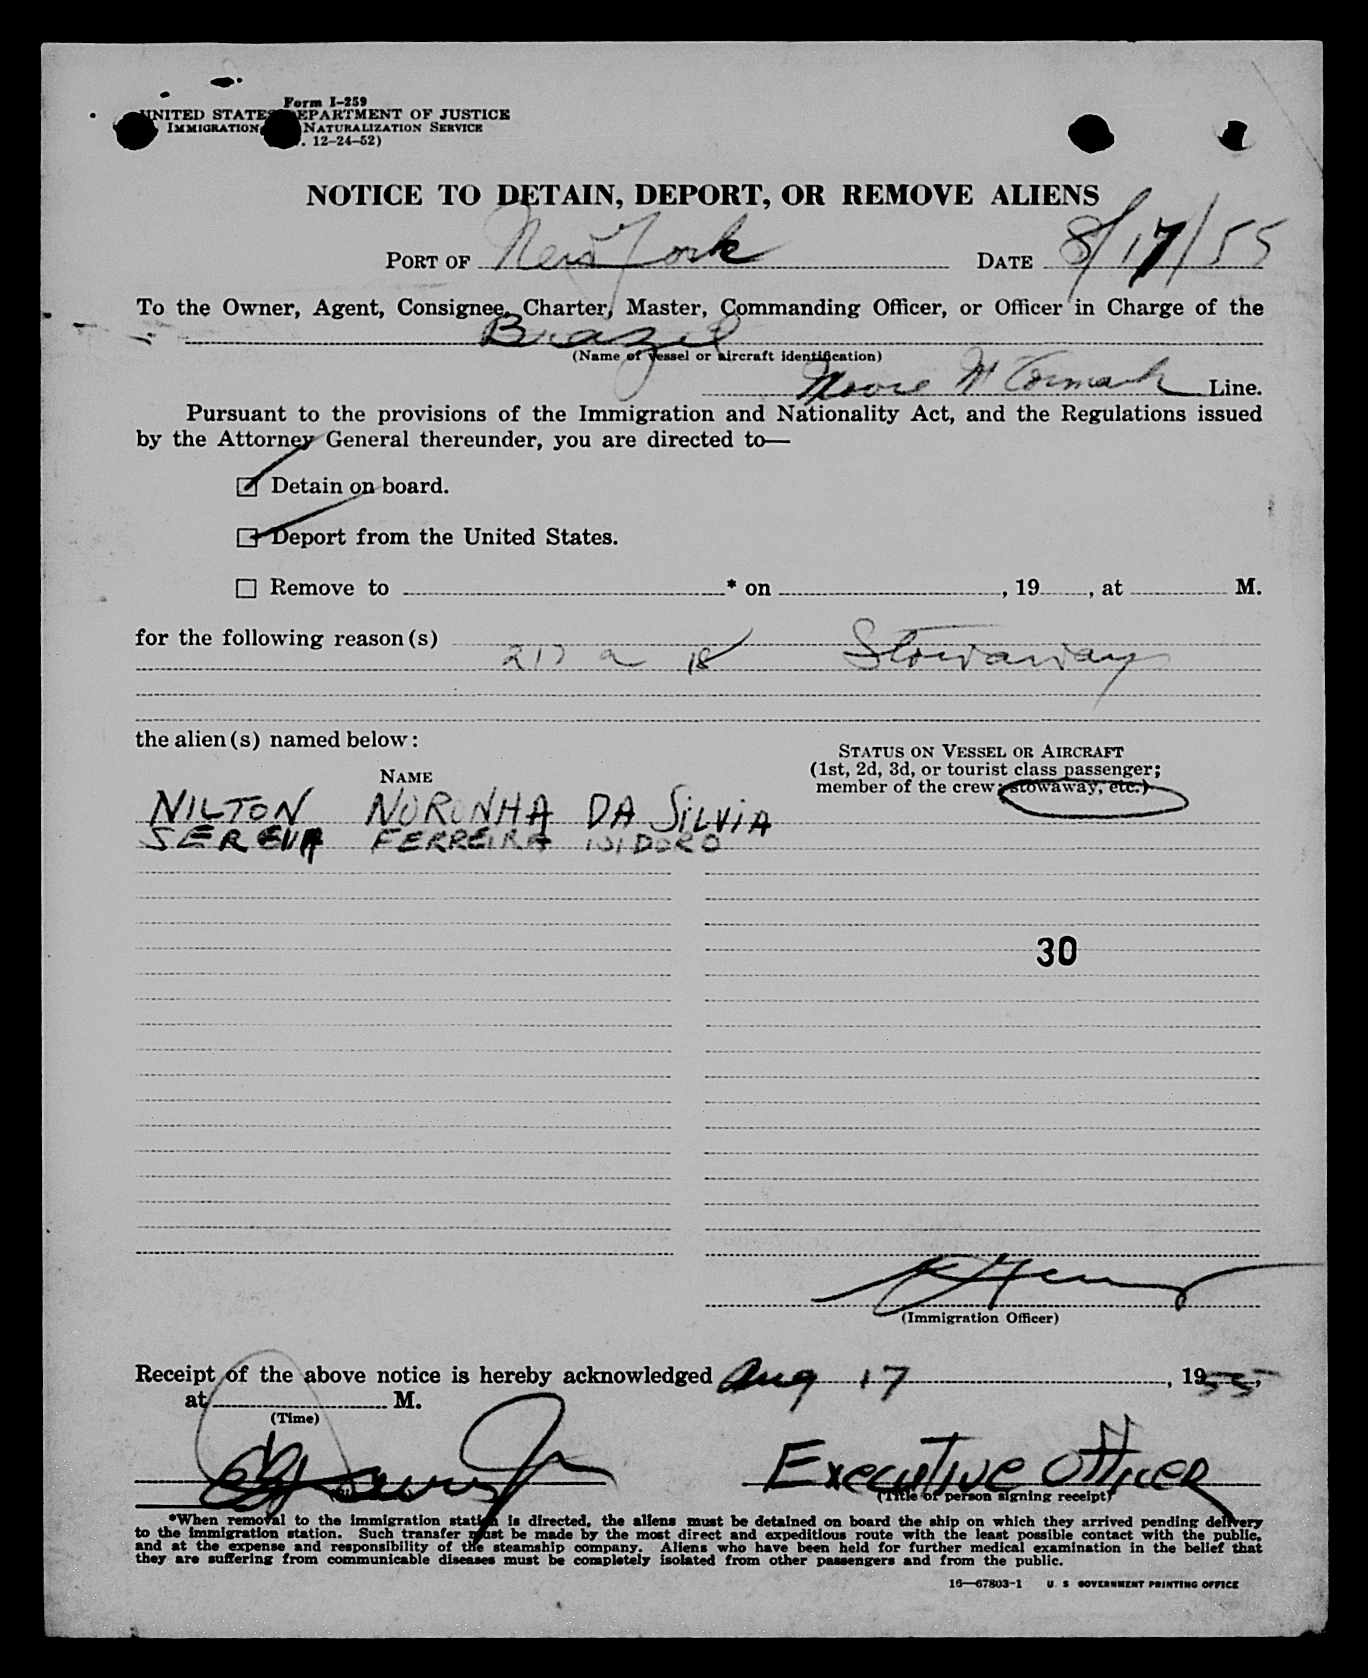 Form I-259
UNITED STATES DEPARTMENT OF JUSTICE
IMMIGRATION NATURALIZATION SERVICE
. 12-24-52)
NOTICE TO DETAIN, DEPORT, OR REMOVE ALIENS
PORT OF New York DATE 8/17/55
To the Owner, Agent, Consignee, Charter, Master, Commanding Officer, or Officer in Charge of the
Brazil
(Name of vessel or aircraft identification)
Moore McCormack Line.
Pursuant to the provisions of the Immigration and Nationality Act, and the Regulations issued
by the Attorney General thereunder, you are directed to—
☑ Detain on board.
☑ Deport from the United States.
☐ Remove to * on , 19 , at M.
for the following reason(s)
212 a 18 Stowaway
the alien(s) named below:
STATUS ON VESSEL OR AIRCRAFT
(1st, 2d, 3d, or tourist class passenger;
NAME member of the crew; stowaway, etc.)
NILTON NORONHA DA SILVIA
FERREIRA ISIDORO
30
(Immigration Officer)
Receipt of the above notice is hereby acknowledged Aug 17, 1955,
at M.
(Time)
Executive Officer
(Title of person signing receipt)
*When removal to the immigration station is directed, the aliens must be detained on board the ship on which they arrived pending delivery
to the immigration station. Such transfer must be made by the most direct and expeditious route with the least possible contact with the public,
and at the expense and responsibility of the steamship company. Aliens who have been held for further medical examination in the belief that
they are suffering from communicable diseases must be completely isolated from other passengers and from the public.
16—67803-1 U. S. GOVERNMENT PRINTING OFFICE